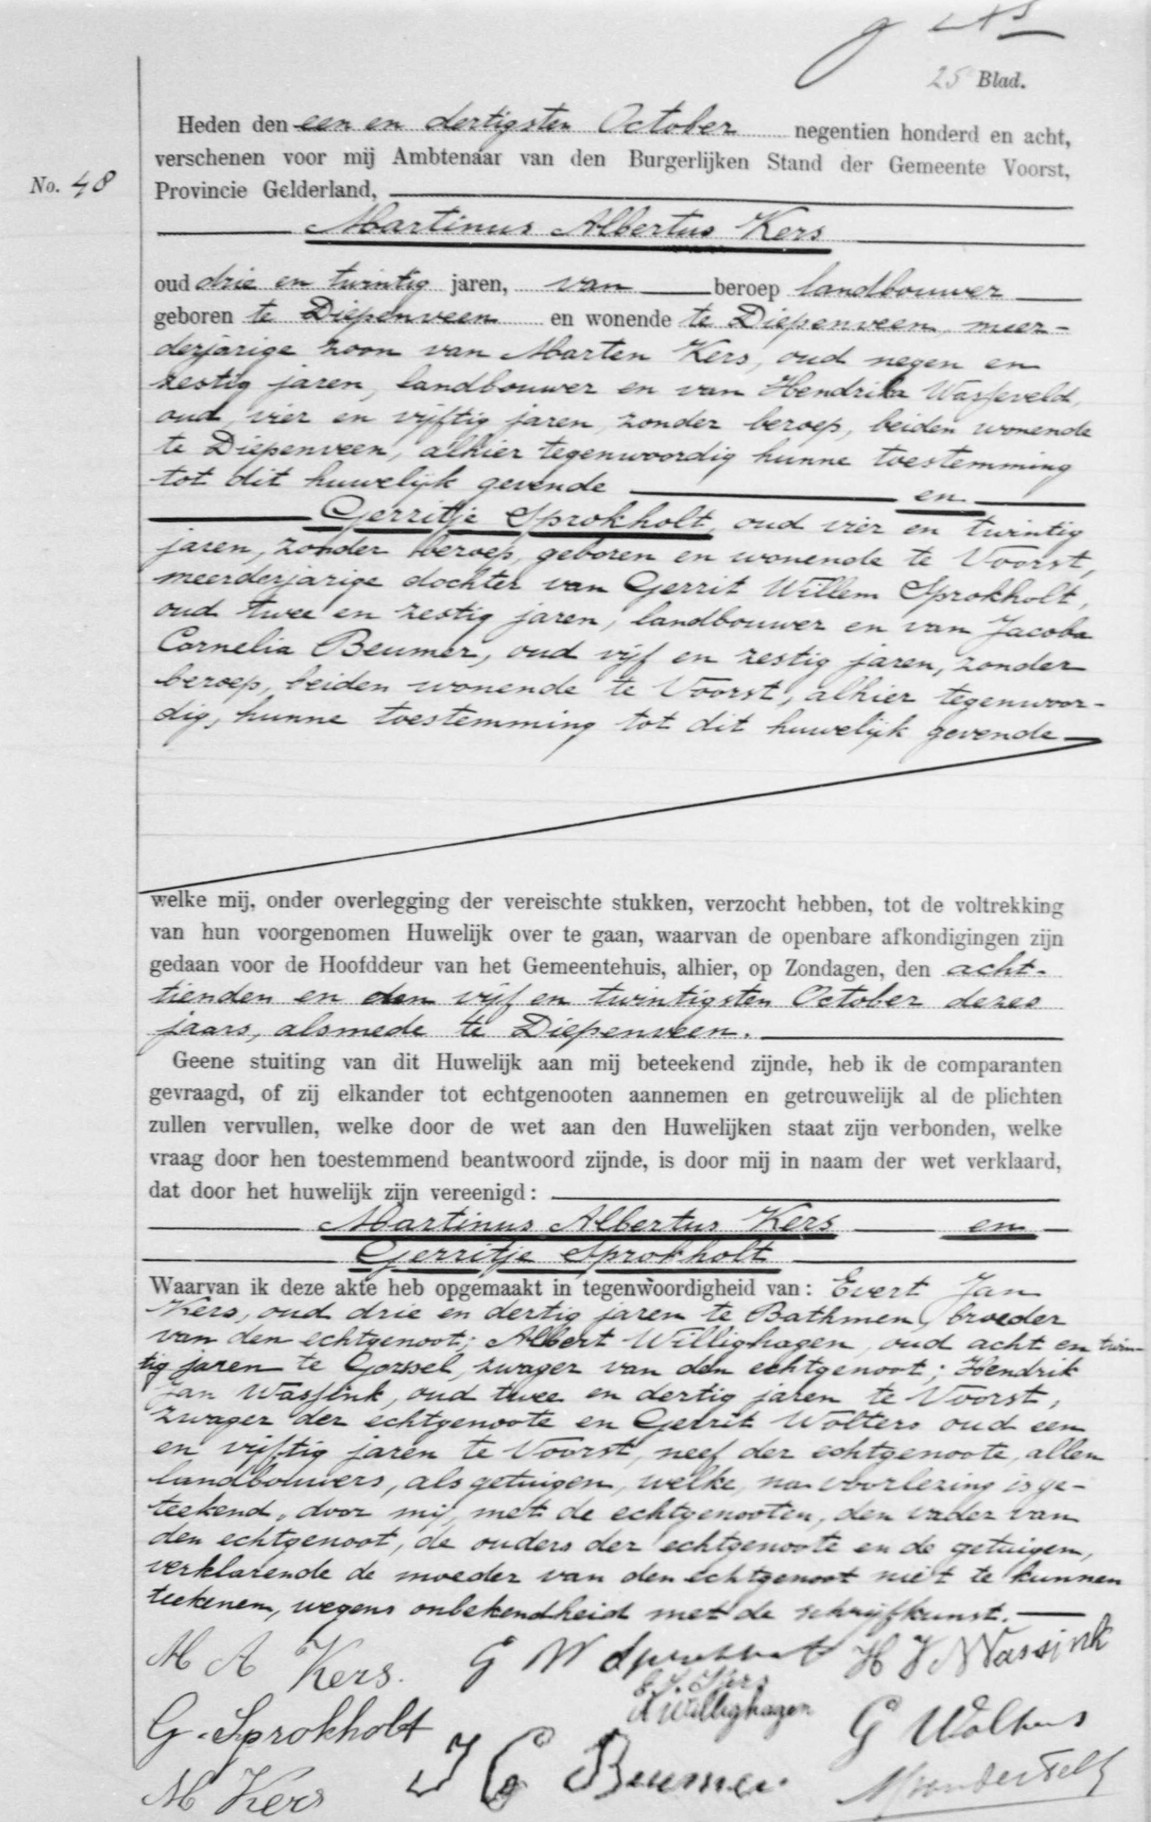 25 Blad.
Heden den een en dertigsten October negentien honderd en acht,
verschenen voor mij Ambtenaar van den Burgerlijken Stand der Gemeente Voorst,
No. 48
Provincie Gelderland,
Martinus Albertus Kers
oud drie en twintig jaren, van beroep landbouwer
geboren te Diepenveen en wonende te Diepenveen, meer-
derjarige zoon van Marten Kers, oud negen en
zestig jaren, landbouwer en van Hendrika Wasseveld,
oud vier en vijftig jaren, zonder beroep, beiden wonende
te Diepenveen, alhier tegenwoordig hunne toestemming
tot dit huwelijk gevende en
Gerritje Sprokholt, oud vier en twintig
jaren, zonder beroep, geboren en wonende te Voorst,
meerderjarige dochter van Gerrit Willem Sprokholt,
oud twee en zestig jaren, landbouwer en van Jacoba
Cornelia Beumer, oud vijf en zestig jaren, zonder
beroep, beiden wonende te Voorst, alhier tegenwoor-
dig, hunne toestemming tot dit huwelijk gevende
welke mij, onder overlegging der vereischte stukken, verzocht hebben, tot de voltrekking
van hun voorgenomen Huwelijk over te gaan, waarvan de openbare afkondigingen zijn
gedaan voor de Hoofddeur van het Gemeentehuis, alhier, op Zondagen, den acht-
tienden en den vijf en twintigsten October dezes
jaars, alsmede te Diepenveen.
Geene stuiting van dit Huwelijk aan mij beteekend zijnde, heb ik de comparanten
gevraagd, of zij elkander tot echtgenooten aannemen en getrouwelijk al de plichten
zullen vervullen, welke door de wet aan den Huwelijken staat zijn verbonden, welke
vraag door hen toestemmend beantwoord zijnde, is door mij in naam der wet verklaard,
dat door het huwelijk zijn vereenigd:
Martinus Albertus Kers en
Gerritje Sprokholt
Waarvan ik deze akte heb opgemaakt in tegenwoordigheid van: Evert Jan
Kers, oud drie en dertig jaren te Bathmen, broeder
van den echtgenoot; Albert Willighagen, oud acht en twin-
tig jaren te Gorssel, zwager van den echtgenoot; Hendrik
Jan Wassink, oud twee en dertig jaren te Voorst,
zwager der echtgenoote en Gerrit Wolters oud een
en vijftig jaren te Voorst, neef der echtgenoote, allen
landbouwers, als getuigen, welke, na voorlezing is ge-
teekend, door mij, met de echtgenooten, den vader van
den echtgenoot, de ouders der echtgenoote en de getuigen,
verklarende de moeder van den echtgenoot niet te kunnen
teekenen, wegens onbekendheid met de schrijfkunst.
M A Kers. G W Sprokholt H J Wassink
E J Kers
A Willighagen
G. Sprokholt G Wolters
M Kers J C Beumer